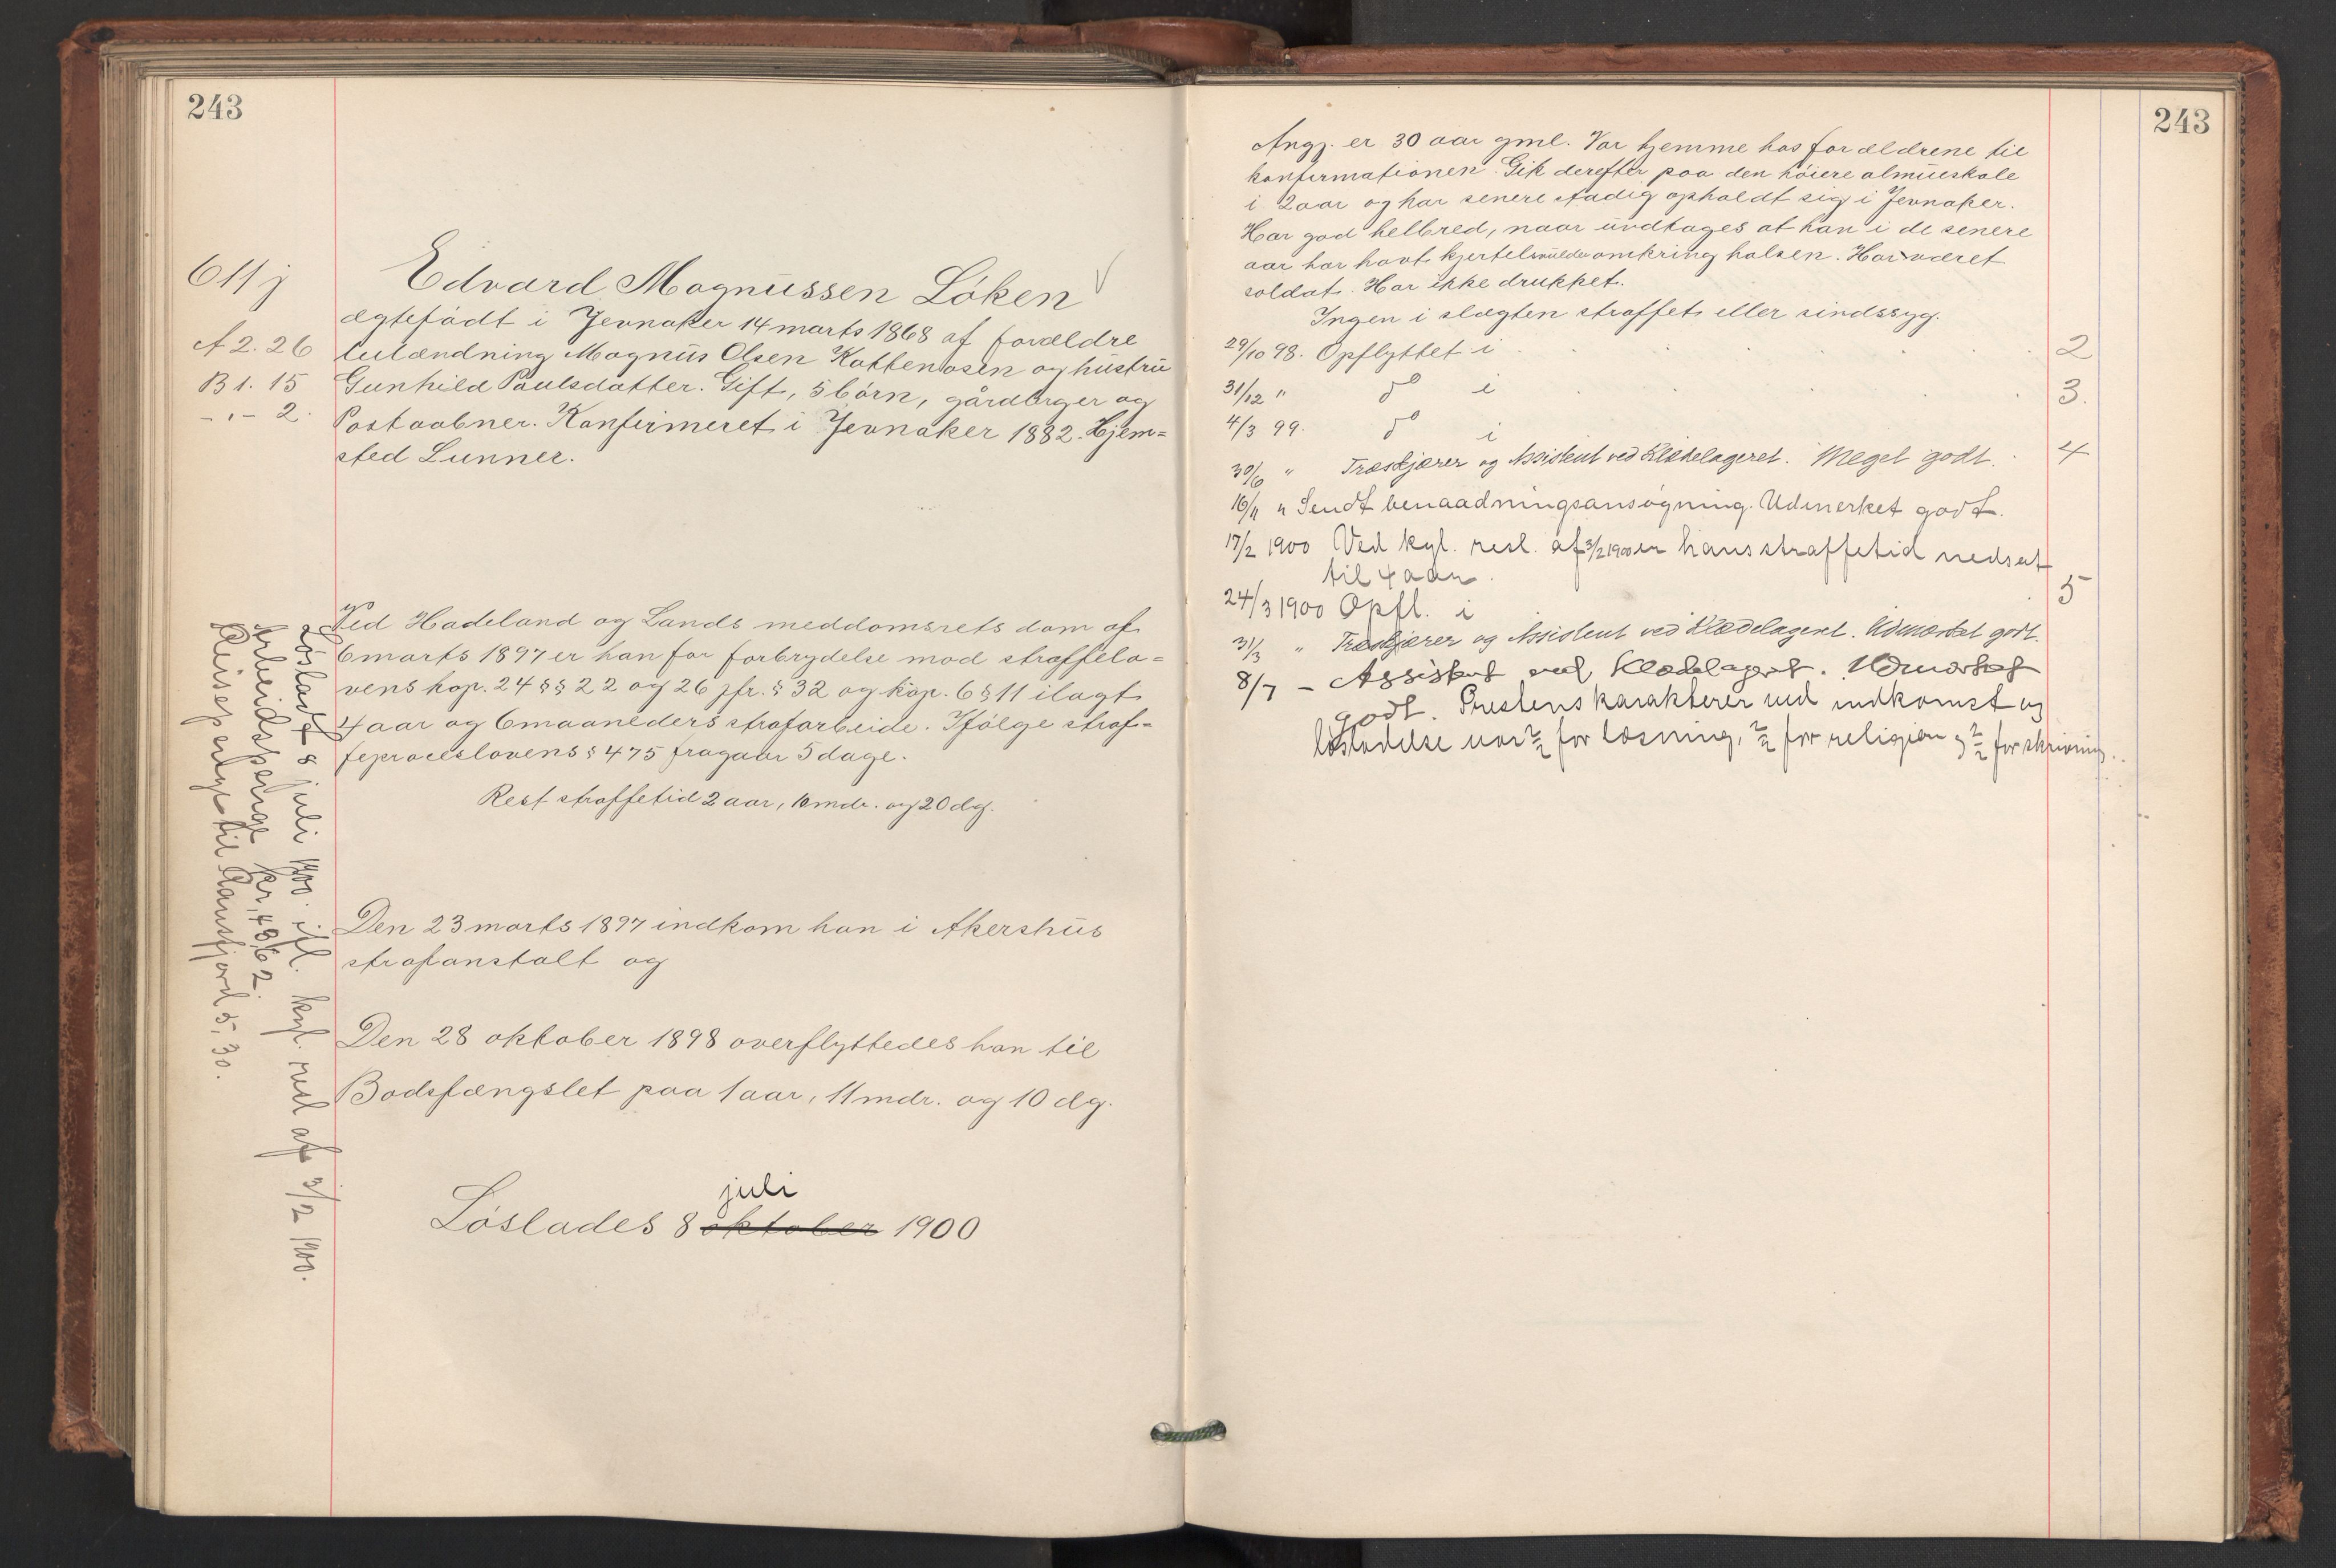 243
611 j
Edvard Magnussen Löken
A 2. 26
B 1. 15
- „ - 2.
ægtefödt i Jevnaker 14 marts 1868 af forældre
Magnus Olsen Kattenosen og hustru
Gunhild Paulsdatter. Gift, 5 börn, gårdbrger og
Postaabner. Konfirmeret i Jevnaker 1882. Hjem=
sted Lunner.
Ved Hadeland og Lands meddomsrets dom af
6 marts 1897 er han for forbrydelse mod straffelo=
vens kap. 24 §§ 22 og 26 jfr. § 32 og kap. 6 § 11 ilagt
4 aar og 6 maaneders strafarbeide. Ifölge straf=
feproceslovens § 475 fragaar 5 dage.
Rest straffetid 2 aar, 10 mdr. og 20 dg.
Den 23 marts 1897 indkom han i Akershus
strafanstalt og
Den 28 oktober 1898 overflyttedes han til
Bodsfængslet paa 1 aar, 11 mdr. og 10 dg.
juli
Löslades 8 oktober 1900
Lösladt 8 juli 1900. ifl. kgl. resl af 3/2 1900.
Arbeidspenge kr. 43,62.
Reisepenge til Randsfjord 5,30.
243
Angj. er 30 aar gml. Var hjemme hos forældrene til
konfirmationen. Gik derefter paa den höiere almueskole
i 2 aar og har senere stadig opholdt sig i Jevnaker.
Har god helbred, naar undtages at han i de senere
aar har havt kjertelsvulder omkring halsen. Har været
soldat. Har ikke drukket.
Ingen i slægten straffet eller sindssyg.
29/10 98. Opflyttet i 2
31/12 " do i 3.
4/3 99. do i 4
30/6 " Træskjærer og Assistent ved Klædelageret. Meget godt.
16/11 " Sendt benaadningsansögning. Udmerket godt.
17/2 1900 Ved kgl. resl. af 3/2 1900 er hans straffetid nedsat
til 4 aar.
24/3 1900 Opfl. i 5
31/3 " Træskjærer og Assistent ved Klædelageret. Udmærket godt.
8/7 - Assistent ved Klædelageret. Udmærket
godt. Prestens karakterer ved indkomst og
löslatelse var 2/2 for læsning, 2/2 for religion og 2/2 for skrivning.